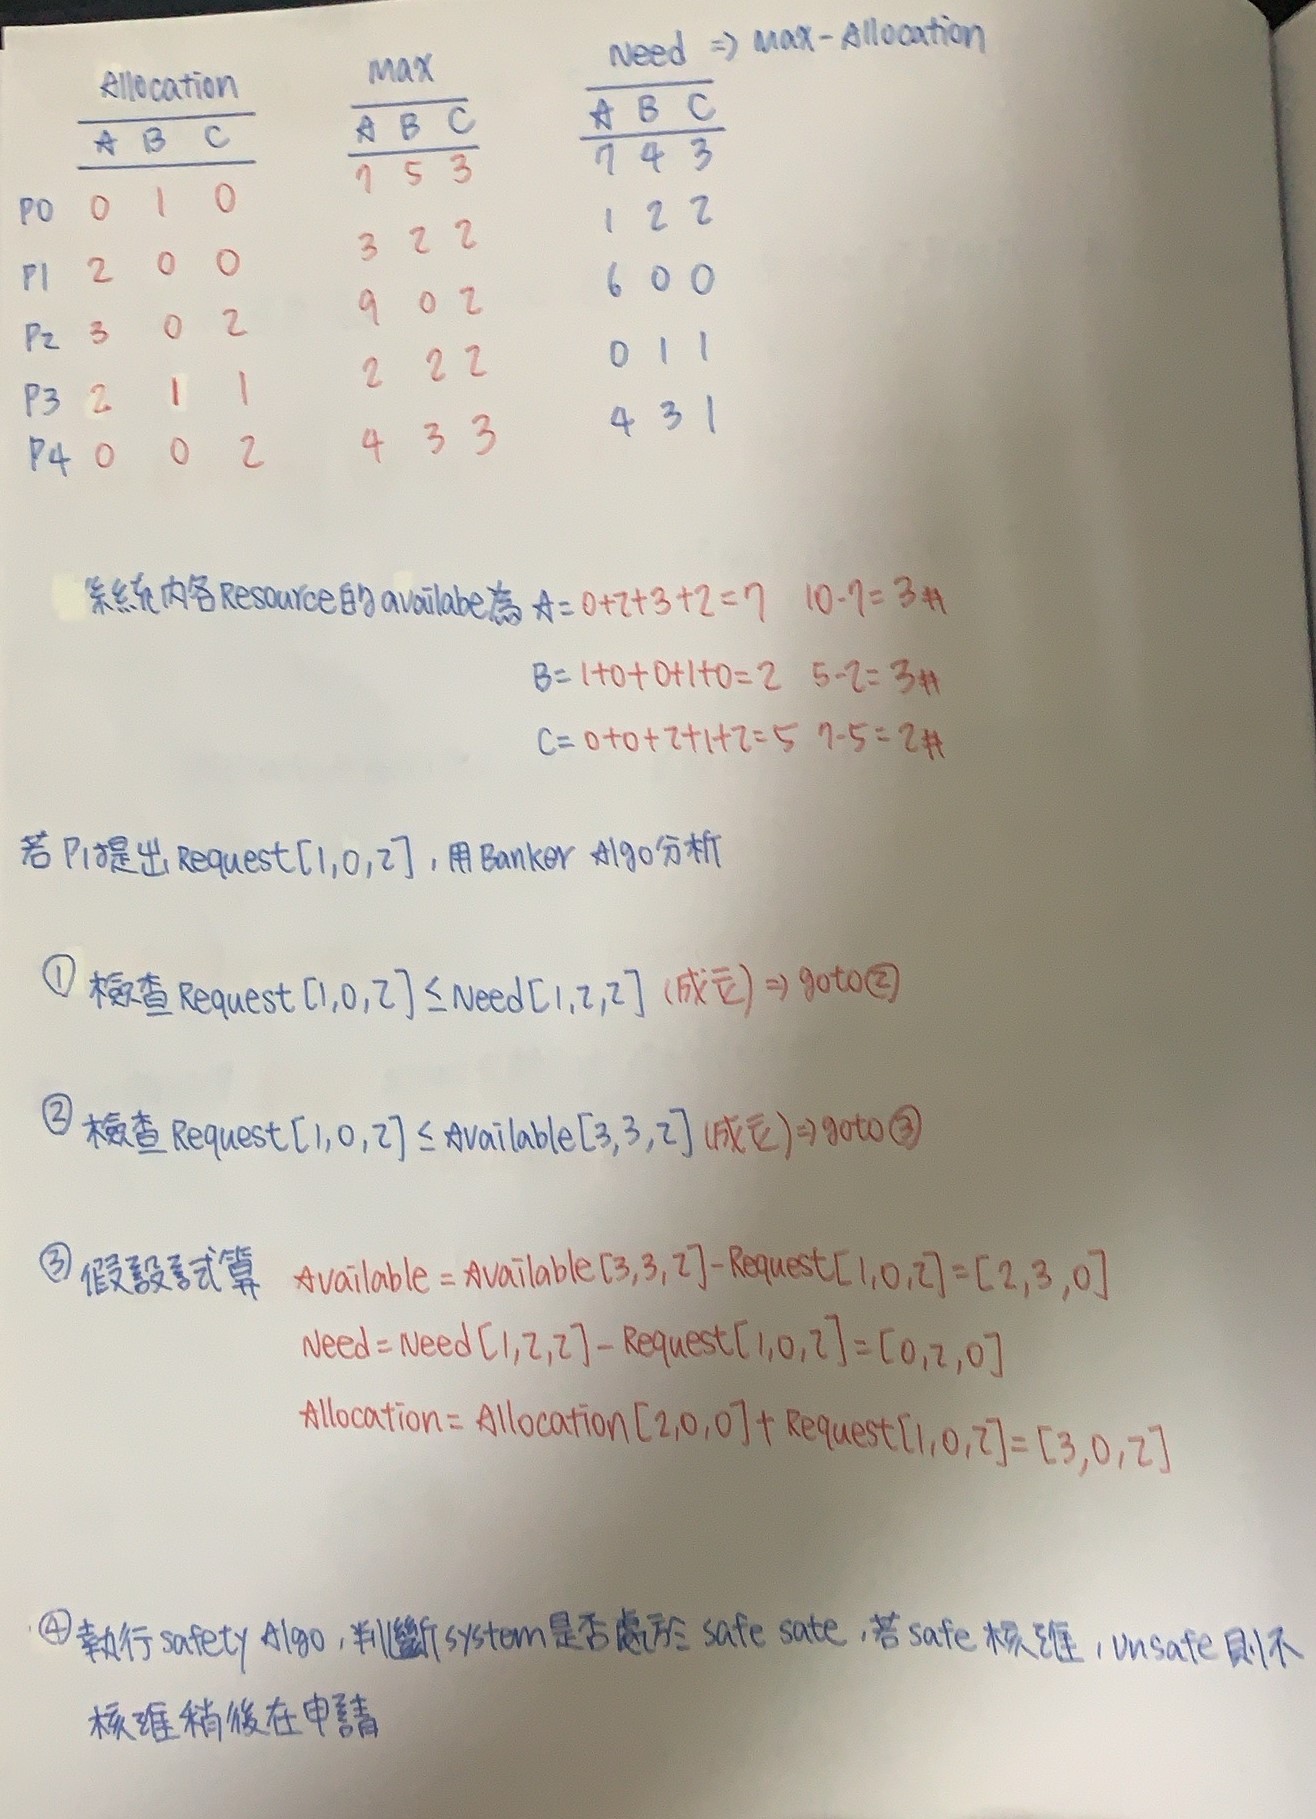 Allocation Max Need => Max-Allocation
A B C A B C A B C
P0 0 1 0 7 5 3 7 4 3
P1 2 0 0 3 2 2 1 2 2
P2 3 0 2 9 0 2 6 0 0
P3 2 1 1 2 2 2 0 1 1
P4 0 0 2 4 3 3 4 3 1
系統內各Resource的availabe為 A=0+2+3+2=7 10-7=3#
B=1+0+0+1+0=2 5-2=3#
C=0+0+2+1+2=5 7-5=2#
若P1提出Request[1,0,2],用Banker Algo分析
① 檢查Request[1,0,2]≤Need[1,2,2] (成立)=>goto②
② 檢查Request[1,0,2]≤Available[3,3,2](成立)=>goto③
③ 假設試算 Available=Available[3,3,2]-Request[1,0,2]=[2,3,0]
Need=Need[1,2,2]-Request[1,0,2]=[0,2,0]
Allocation=Allocation[2,0,0]+Request[1,0,2]=[3,0,2]
④執行safety Algo,判斷system是否處於safe sate,若safe核准,unsafe則不
核准稍後在申請